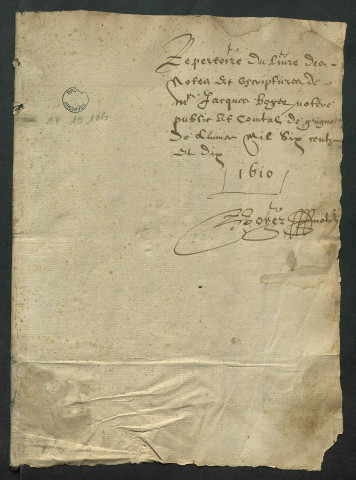 Repertoire du livre des
Notes et escriptures de
Me Jacques Boyer notere
public et Comtal de grignan
de mil six centz
et dix
1610
Boyer